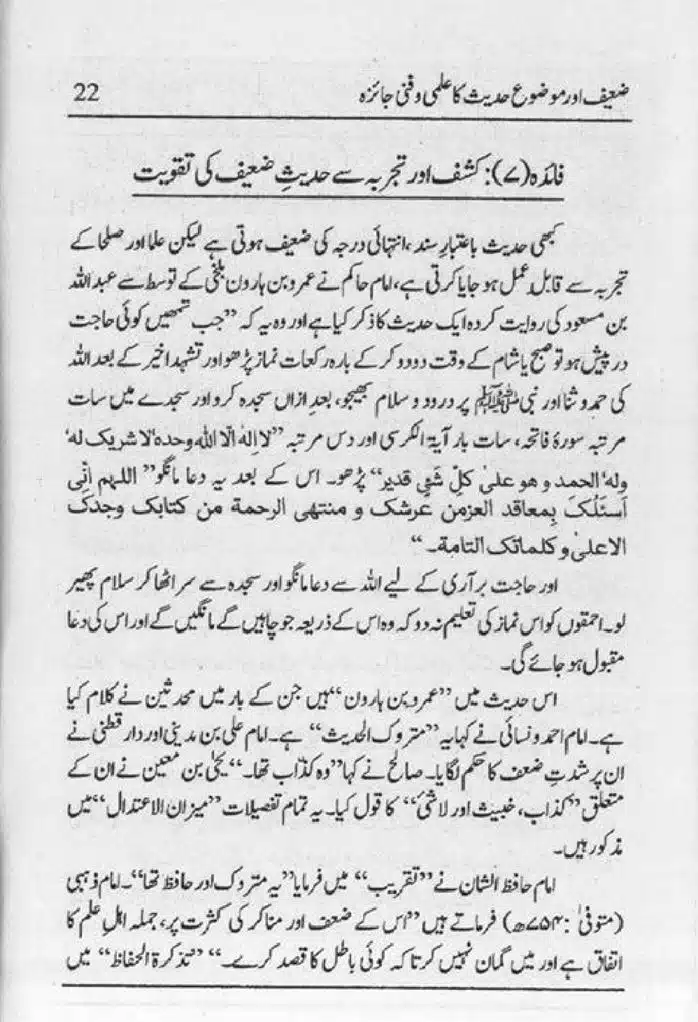 ضعیف اور موضوع حدیث کا علمی و فنی جائزہ 22
فائدہ (۷): کشف اور تجربہ سے حدیثِ ضعیف کی تقویت
کبھی حدیث باعتبارِ سند، انتہائی درجہ کی ضعیف ہوتی ہے لیکن علما اور صلحا کے
تجربہ سے قابلِ عمل ہو جایا کرتی ہے، امام حاکم نے عمرو بن ہارون بلخی کے توسط سے عبد اللہ
بن مسعود کی روایت کردہ ایک حدیث کا ذکر کیا ہے اور وہ یہ کہ ”جب تمھیں کوئی حاجت
در پیش ہو تو صبح یا شام کے وقت دو دو کر کے بارہ رکعات نماز پڑھو اور تشہد اخیر کے بعد اللہ
کی حمد و ثنا اور نبی ﷺ پر درود و سلام بھیجو، بعد ازاں سجدہ کرو اور سجدے میں سات
مرتبہ سورۂ فاتحہ، سات بار آیۃ الکرسی اور دس مرتبہ ”لا الٰہ الّا اللّٰہ وحدہٗ لا شریک لہٗ
ولہٗ الحمد و هو علیٰ کلِّ شَیٍٔ قدیر“ پڑھو۔ اس کے بعد یہ دعا مانگو” اللہم انِّی
اَسئَلُکَ بِمعاقد العزمن عرشک و منتهی الرحمة من کتابک وجدک
الاعلیٰ و کلماتک التامة۔“
اور حاجت برآری کے لیے اللہ سے دعا مانگو اور سجدہ سے سر اٹھا کر سلام پھیر
لو۔ احمقوں کو اس نماز کی تعلیم نہ دو کہ وہ اس کے ذریعہ جو چاہیں گے مانگیں گے اور اس کی دعا
مقبول ہو جائے گی۔
اس حدیث میں ”عمرو بن ہارون“ ہیں جن کے بار میں محدثین نے کلام کیا
ہے۔ امام احمد و نسائی نے کہا یہ ”متروک الحدیث“ ہے۔ امام علی بن مدینی اور دار قطنی نے
ان پر شدتِ ضعف کا حکم لگایا۔ صالح نے کہا ”وہ کذّاب تھا۔“ یحیٰ بن معین نے ان کے
متعلق ”کذاب، خبیث اور لاشئ“ کا قول کیا۔ یہ تمام تفصیلات ”میزان الاعتدال“ میں
مذکور ہیں۔
امام حافظ الشان نے ”تقریب“ میں فرمایا ”یہ متروک اور حافظ تھا“۔ امام ذہبی
(متوفیٰ: ۷۵۴ھ) فرماتے ہیں ”اس کے ضعف اور مناکر کی کثرت پر، جملہ اہلِ علم کا
اتفاق ہے اور میں گمان نہیں کرتا کہ کوئی باطل کا قصد کرے۔“ ”تذکرۃ الحفاظ“ میں